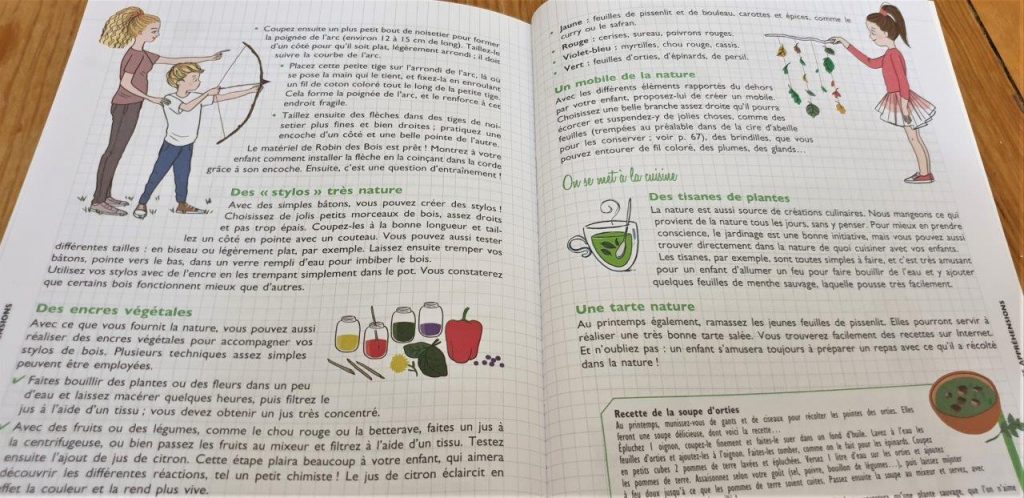 • Coupez ensuite un plus petit bout de noisetier pour former
la poignée de l'arc (environ 12 à 15 cm de long). Taillez-le
d'un côté pour qu'il soit plat, légèrement arrondi ; il doit
suivre la courbe de l'arc.
• Placez cette petite tige sur l'arrondi de l'arc, là où
se pose la main qui le tient, et fixez-la en enroulant
un fil de coton coloré tout le long de la petite tige.
Cela forme la poignée de l'arc, et le renforce à cet
endroit fragile.
• Taillez ensuite des flèches dans des tiges de noi-
setier plus fines et bien droites ; pratiquez une
encoche d'un côté et une belle pointe de l'autre.
Le matériel de Robin des Bois est prêt ! Montrez à votre
enfant comment installer la flèche en la coinçant dans la corde
grâce à son encoche. Ensuite, c'est une question d'entraînement !
Des « stylos » très nature
Avec des simples bâtons, vous pouvez créer des stylos !
Choisissez de jolis petits morceaux de bois, assez droits
et pas trop épais. Coupez-les à la bonne longueur et tail-
lez un côté en pointe avec un couteau. Vous pouvez aussi tester
différentes tailles : en biseau ou légèrement plat, par exemple. Laissez ensuite tremper vos
bâtons, pointe vers le bas, dans un verre rempli d'eau pour imbiber le bois.
Utilisez vos stylos avec de l'encre en les trempant simplement dans le pot. Vous constaterez
que certains bois fonctionnent mieux que d'autres.
Des encres végétales
Avec ce que vous fournit la nature, vous pouvez aussi
réaliser des encres végétales pour accompagner vos
stylos de bois. Plusieurs techniques assez simples
peuvent être employées.
✓ Faites bouillir des plantes ou des fleurs dans un peu
d'eau et laissez macérer quelques heures, puis filtrez le
jus à l'aide d'un tissu ; vous devez obtenir un jus très concentré.
✓ Avec des fruits ou des légumes, comme le chou rouge ou la betterave, faites un jus à
la centrifugeuse, ou bien passez les fruits au mixeur et filtrez à l'aide d'un tissu. Testez
ensuite l'ajout de jus de citron. Cette étape plaira beaucoup à votre enfant, qui aimera
découvrir les différentes réactions, tel un petit chimiste ! Le jus de citron éclaircit en
effet la couleur et la rend plus vive.
• Jaune : feuilles de pissenlit et de bouleau, carottes et épices, comme le
curry ou le safran.
• Rouge : cerises, sureau, poivrons rouges.
• Violet-bleu : myrtilles, chou rouge, cassis.
• Vert : feuilles d'orties, d'épinards, de persil.
Un mobile de la nature
Avec les différents éléments rapportés du dehors
par votre enfant, proposez-lui de créer un mobile.
Choisissez une belle branche assez droite qu'il pourra
écorcer et suspendez-y de jolies choses, comme des
feuilles (trempées au préalable dans de la cire d'abeille
pour les conserver : voir p. 67), des brindilles, que vous
pouvez entourer de fil coloré, des plumes, des glands…
On se met à la cuisine
Des tisanes de plantes
La nature est aussi source de créations culinaires. Nous mangeons ce qui
provient de la nature tous les jours, sans y penser. Pour mieux en prendre
conscience, le jardinage est une bonne initiative, mais vous pouvez aussi
trouver directement dans la nature de quoi cuisiner avec vos enfants.
Les tisanes, par exemple, sont toutes simples à faire, et c'est très amusant
pour un enfant d'allumer un feu pour faire bouillir de l'eau et y ajouter
quelques feuilles de menthe sauvage, laquelle pousse très facilement.
Une tarte nature
Au printemps également, ramassez les jeunes feuilles de pissenlit. Elles pourront servir à
réaliser une très bonne tarte salée. Vous trouverez facilement des recettes sur Internet.
Et n'oubliez pas : un enfant s'amusera toujours à préparer un repas avec ce qu'il a récolté
dans la nature !
APPRÉHENSIONS
Recette de la soupe d'orties
Au printemps, munissez-vous de gants et de ciseaux pour récolter les pointes des orties. Elles
feront une soupe délicieuse, dont voici la recette…
Épluchez 1 oignon, coupez-le finement et faites-le suer dans un fond d'huile. Lavez à l'eau les
feuilles d'orties et ajoutez-les à l'oignon. Faites-les tomber, comme on le fait pour les épinards. Coupez
en petits cubes 2 pommes de terre lavées et épluchées. Versez 1 litre d'eau sur les orties et ajoutez
les pommes de terre. Assaisonnez selon votre goût (sel, poivre, bouillon de légumes…), puis laissez mijoter
à feu doux jusqu'à ce que les pommes de terre soient cuites. Passez ensuite la soupe au mixeur et servez, avec
plante sauvage, que l'on n'aime